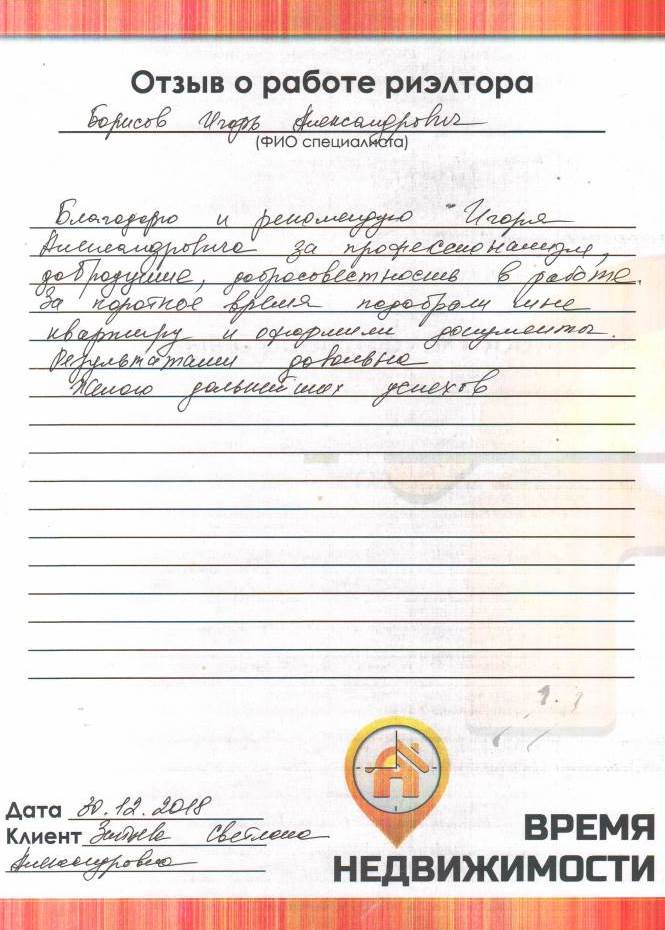 Отзыв о работе риэлтора
Борисов Игорь Александрович
(ФИО специалиста)
Благодарю и рекомендую Игоря
Александровича за профессионализм,
добродушие, добросовестность в работе.
За короткое время подобрали мне
квартиру и оформили документы.
Результатами довольна
Желаю дальнейших успехов
Дата 30.12.2018
Клиент Светлана
Александровна
ВРЕМЯ
НЕДВИЖИМОСТИ